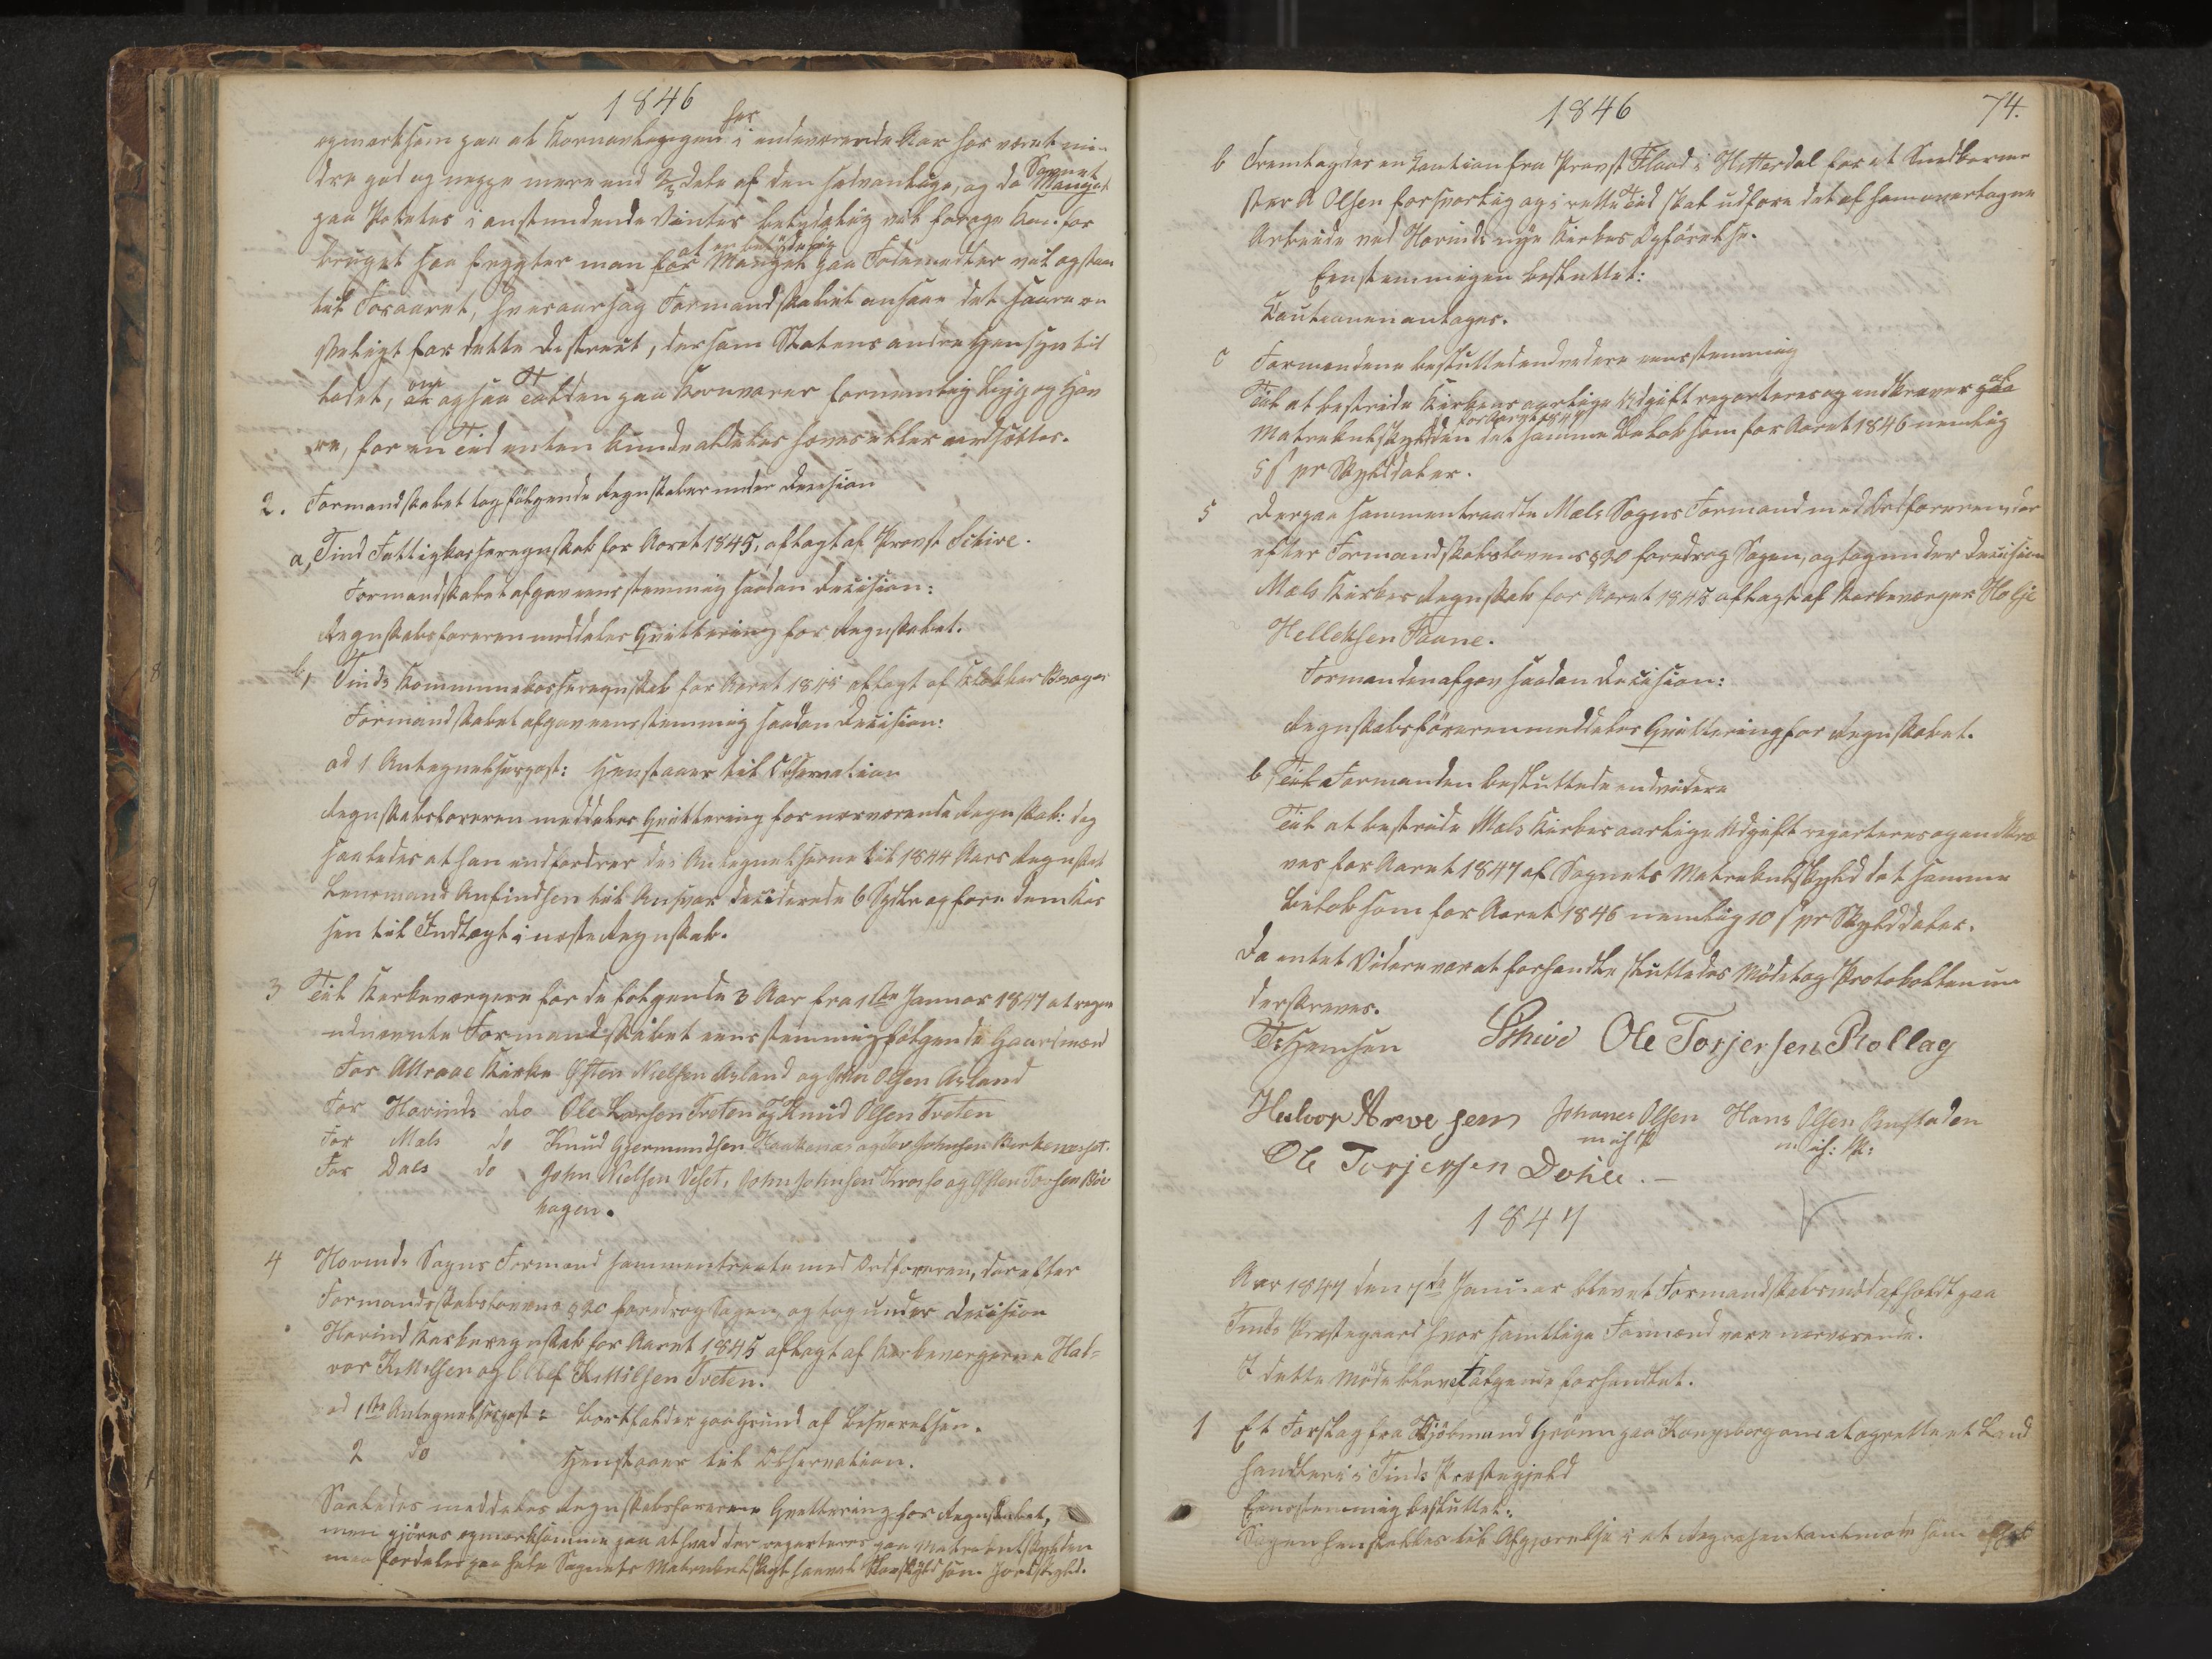 1846
opmærksom paa at Kornavlingen her i indeværende Aar har været min-
dre god og neppe mere end 2/3 dele af den sedvanlige, og da Savnet
paa Poteter i anstundende Vinter betydelig vil forøge Kornfor
bruget saa frygter man for at en betydelig Mangel paa Fødemidler vil opstaa
til Foraaret, hvoraarsag Formandskabet ansaae det saare ön
skeligt for dette District, dersom Statens andre Hensyn til
lodet, om ogsaa Tolden paa Kornvarer fornemlig Byg og Hav
re, for en Tid enten kunde aldeles hæves eller nedsættes.
2. Formandskabet tog fölgende Regnskaber under Decision
a, Tind Fattigkasseregnskab for Aaret 1845, aflagt af Provst Schive.
Formandskabet afgav eensstemmig saadan Decision:
Regnskabsföreren meddeles Qvittering for Regnskabet.
b, Tinds Kommunekasseregnskab for Aaret 1845 aflagt af Klokker
Formandskabet afgav eensstemmig saadan Decision:
ad 1 Antegnelsespost: Henstaaer til Observation
Regnskabsföreren meddeles Qvittering for nærværende Regnskab: dog
saaledes at han indfordrer de i Antegnelserne til 1844 Aars Regnskab
Lensmand Anfindsen til Ansvar deciderede 6 og före dem Kas
sen til Indtægt i næste Regnskab.
3 Til Kirkeværgere for de fölgende 3 Aar fra 1ste Januar 1847 at regne
udnævnte Formandskabet eensstemmig fölgende Gaardmænd
For Attraae Kirke Østen Nielsen Asland og John Olsen Asland
For Hovinds do Ole Larsen Tveten og Knud Olsen Tveten
For Mæls do Knud Gjermundsen Haakenæs og Tov Johnsen
For Dals do John Nielsen Veset, John Johnsen Krosso og Østen Torsen Böe
hagen.
4 Hovinds Sogns Formænd sammentraadte med Ordföreren, der efter
Formandsskabslovens § 20 foredrog Sagen, og tog under Decision
Hovind Kirkeregnskab for Aaret 1845 aflagt af Kirkeværgerne Hal=
vor Kittilsen og Ollef Kittilsen Tveten.
ad 1ste Antegnelsespost: bortfalder paa Grund af Besvarelsen.
2 do Henstaaer til Observation.
Saaledes meddeles Regnskabsförerne Qvittering for Regnskabet,
men gjöres opmærksomme paa at hvad der reparteres paa Matrikulskylden
maa fordeles paa hele Sognets Matrikulskyld saavel som Jordskyld.
1846 74.
b Fremlagdes en Caution fra Provst Flood i Hitterdal for at Snedkerme
ster A Olsen forsvarlig og i rette Tid skal udføre det af ham overtagne
Arbeide ved Hovinds nye Kirkes Opförelse.
Eenstemmigen besluttet:
Cautionen antages.
c Formændene besluttede endvidere eensstemmig
Til at bestride Kirkens aarlige Udgift reparteres og indkræves paa af
Matrikulskylden for Aaret 1847 det samme Belöb som for Aaret 1846 nemlig
5 ß pr Skylddaler.
5 Derpaa sammentraadte Mæls Sogns Formænd med Ordföreren, der
efter Formandskabslovens § 20 foredrog Sagen, og tog under Decision
Mæls Kirkes Regnskab for Aaret 1845 aflagt af Kirkeværger Holje
Helleksen Faane.
Formanden afgav saadan Decision:
Regnskabsföreren meddeles Qvittering for Regnskabet.
b Til Formanden besluttede endvidere
Til at bestride Mæls Kirkes aarlige Udgift reparteres og indkræ
ves for Aaret 1847 af Sognets Matrikulskyld det samme
Belöb som for Aaret 1846 nemlig 10 ß pr Skylddaler.
Da intet Videre var at forhandle sluttedes Mödet og Protokollen un
derskreves.
Hemsen Schive Ole Torjersen Rollag
Halvor Arvesen Johanes Olsen Hans Olsen
m i h P m ih: P:
Ole Torjersen Dohle.—
1847
Aar 1847 den 7de Januar blev et Formandskabsmöde afholdt paa
Tinds Præstegaard hvor samtlige Formænd vare nærværende.
I dette Möde blev fölgende forhandlet.
1 Et Forslag fra Kjöbmand Grönn paa Kongsberg om at oprette et Land
handleri i Tinds Præstegjeld
Eensstemmig besluttet:
Sagen henstilles til Afgjörelse i et Repræsentantmöde som